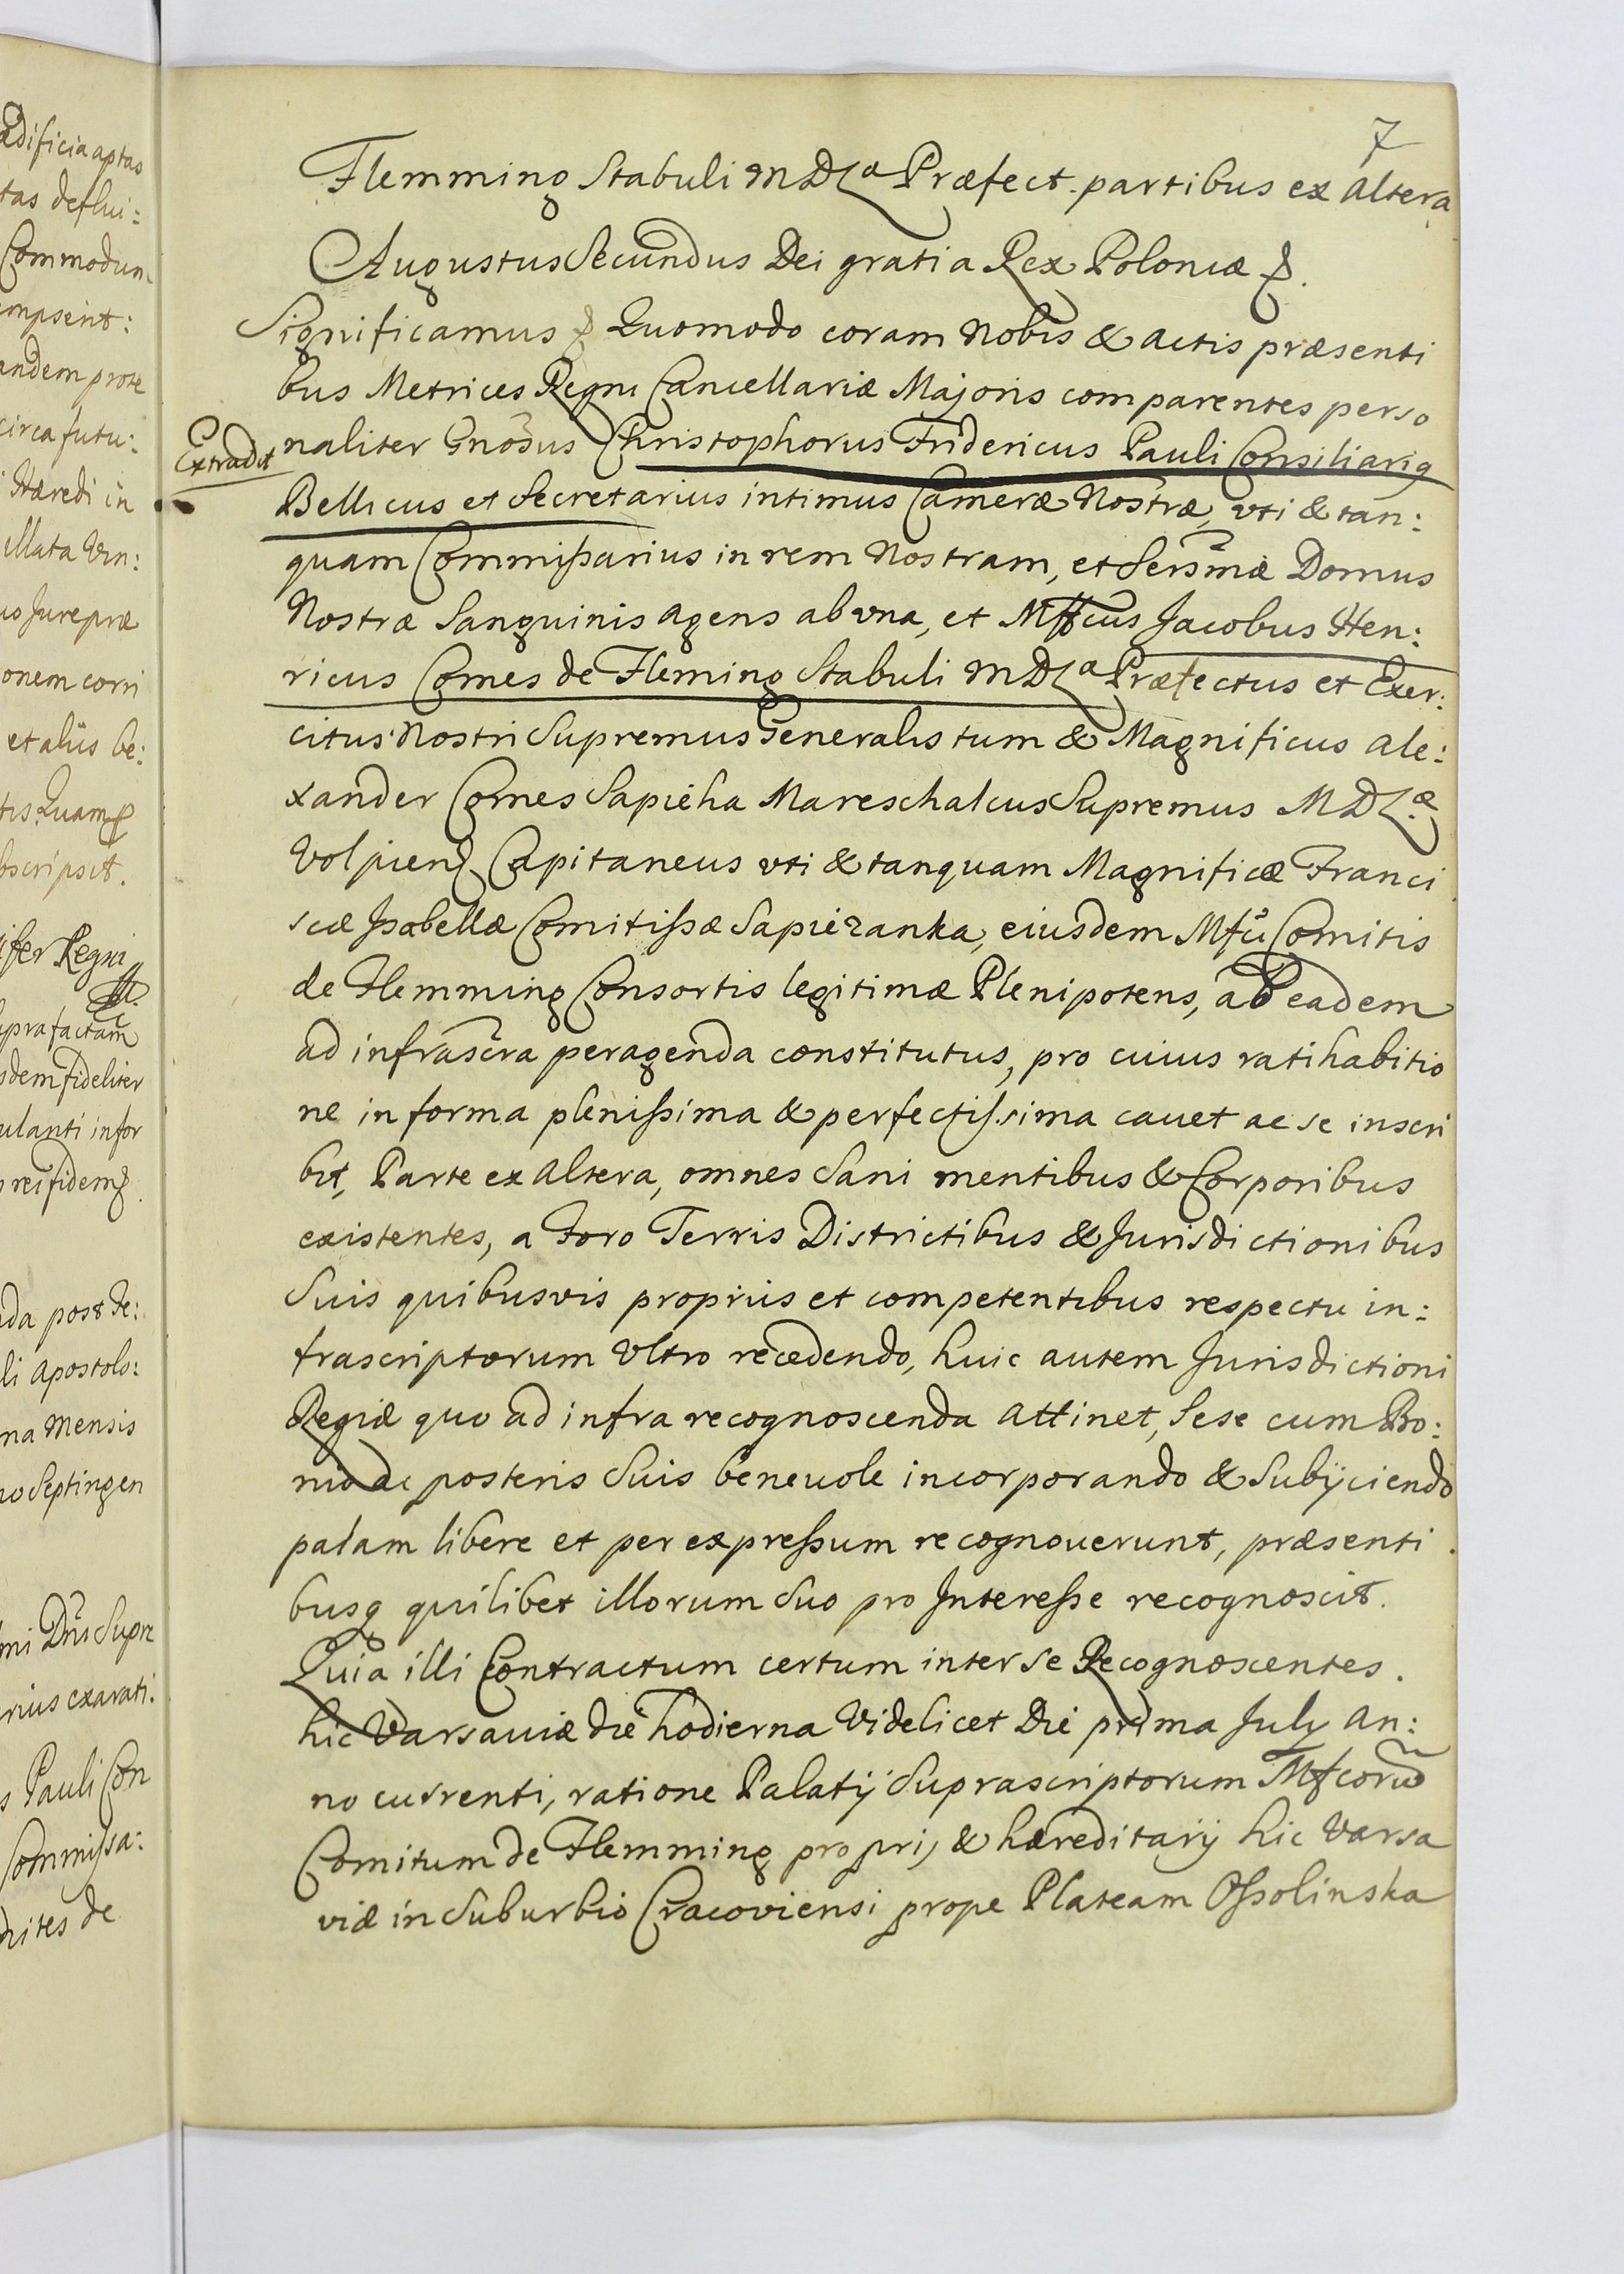 7
Flemming Stabuli MDLæ Præfect. partibus ex altera
Augustus Secundus Dei gratia Rex Poloniæ
Significamus Quomodo coram Nobis & actis præsenti
bus Metrices Regni Cancellariæ Majoris comparentes perso
Extradit
naliter Gnosus Christophorus Fridericus Pauli Consiliariq
Bellicus et Secretarius intimus Cameræ Nostræ, vti & tan:
quam Commißarius in rem Nostram, et Sersmæ Domus
Nostræ Sanguinis agens ab vna, et Mffcus Jacobus Hen:
ricus Comes de Fleming Stabuli MDLæ Præfectus et Exer:
citus Nostri Supremus Generalis tum & Magnificus Ale:
xander Comes Sapieha Mareschalcus Supremus MDLæ
Volpien Capitaneus vti & tanquam Magnificæ Franci
scæ Isabellæ Comitißæ Sapiezanka, eiusdem Mfci Comitis
de Flemming Consortis legitimæ Plenipotens, ab eadem
ad infrascra peragenda constitutus, pro cuius ratihabitio
ne in forma plenißima & perfectißima cauet ac se inscri
bit, Parte ex altera, omnes Sani mentibus & Corporibus
existentes, a Foro Terris Districtibus & Jurisdictionibus
Suis quibusvis propriis et competentibus respectu in:
frascriptorum Vltro recedendo, huic autem Jurisdictioni
Regiæ quo ad infra recognoscenda attinet, Sese cum Bo:
nis ac posteris Suis beneuole incorporando & Subijciendo
palam libere et per expreßum recognouerunt, præsenti
busq quilibet illorum Suo pro Intereße recognoscit.
Quia illi Contractum certum inter se Recognoscentes.
hic Varsauiæ die hodierna Videlicet Die prima July An:
no currenti, ratione Palatij Suprascriptorum Mfcoru
Comitum de Flemming proprij & hæreditarij hic Varsa
viæ in Suburbio Cracoviensi prope Plateam Oßolinska